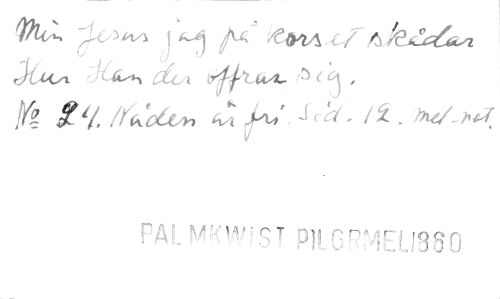 Min Jesus jag på korset skådar
Hur Han der offrar sig.
No 24. Nåden är fri. Sid. 12. mel-not.
PALMKWIST PILGRMEL1860